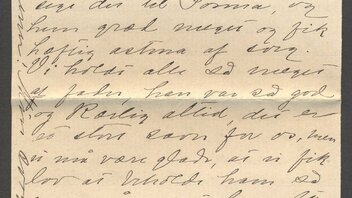 sige det til Povina, og
hun græd meget og fik
hæftig astma af sorg.
Vi holdt alle så meget
af fader, han var så god
og kærlig altid, det er
et stort savn for os, men
vi må være glade, at vi fik
lov at beholde ham så